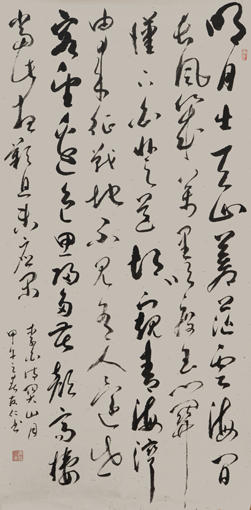 明月出天山苍茫云海间
长风几万里吹度玉门关
汉下白登道胡窥青海湾
由来征战地不见有人还戍
客望边色思归多苦颜高楼
当此夜叹息未应闲
李白诗关山月
甲午之春友仁书